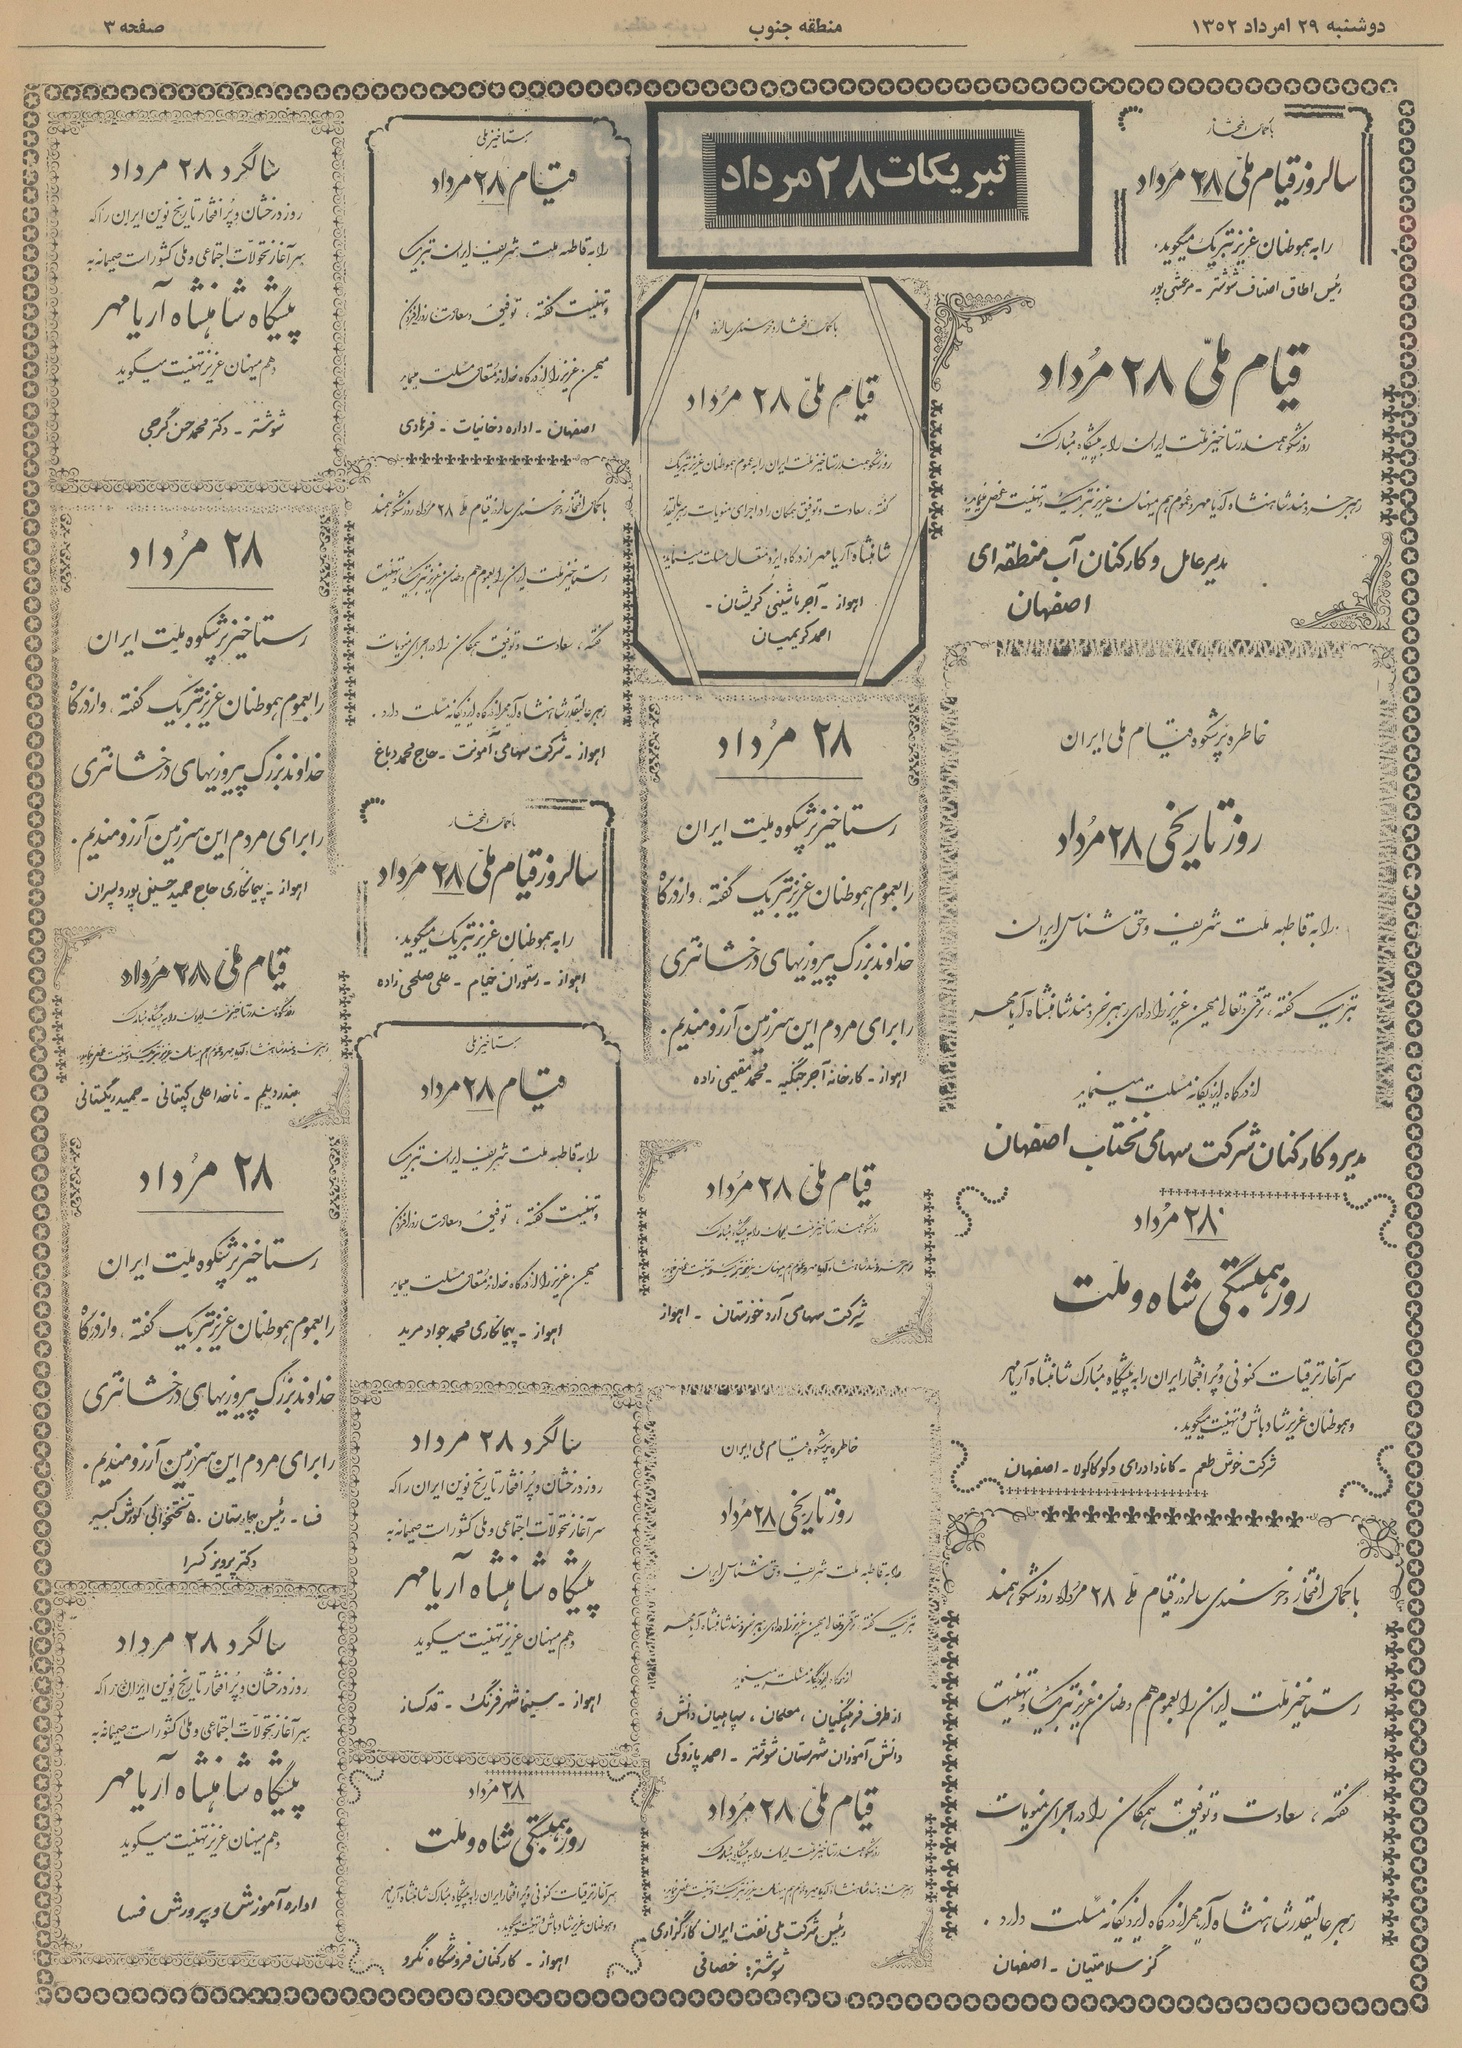 دوشنبه ۲۹ امرداد ۱۳۵۲
منطقه جنوب
صفحه ۳
تبریکات ۲۸ مرداد
با کمال افتخار
سالروز قیام ملی ۲۸ مرداد
را به هموطنان عزیز تبریک میگوید.
رئیس اطاق اصناف شوشتر - مرعشی پور
قیام ملی ۲۸ مرداد
روز شکوهمند رستاخیز ملت ایران را به پیشگاه مبارک
رهبر خردمند شاهنشاه آریامهر و عموم هم میهنان عزیز تبریک و تهنیت عرض مینماید
مدیر عامل و کارکنان آب منطقه ای
اصفهان
خاطره پرشکوه قیام ملی ایران
روز تاریخی ۲۸ مرداد
را به قاطبه ملت شریف و حق شناس ایران
تبریک گفته، ترقی و تعالی میهن عزیز را در لوای رهبر خردمند شاهنشاه آریامهر
از درگاه ایزد یگانه مسئلت مینماید
مدیر و کارکنان شرکت سهامی نختاب اصفهان
۲۸ مرداد
روز همبستگی شاه و ملت
سرآغاز ترقیات کنونی و پر افتخار ایران را به پیشگاه مبارک شاهنشاه آریامهر
و هموطنان عزیز شادباش و تهنیت میگوید.
شرکت خوش طعم - کانادادرای و کوکاکولا - اصفهان
با کمال افتخار و خرسندی سالروز قیام ملی ۲۸ مرداد روز شکوهمند
رستاخیز ملت ایران را بعموم هم وطنان عزیز تبریک و تهنیت
گفته، سعادت و توفیق همگان را در اجرای منویات
رهبر عالیقدر شاهنشاه آریامهر از درگاه ایزد یگانه مسئلت دارد.
گز سلامتیان - اصفهان
با کمال افتخار و خرسندی سالروز
قیام ملی ۲۸ مرداد
روز شکوهمند رستاخیز ملت ایران را به عموم هموطنان عزیز تبریک
گفته، سعادت و توفیق همگان را در اجرای منویات رهبر عالیقدر
شاهنشاه آریامهر از درگاه ایزد متعال مسئلت مینماید
اهواز - آجر ماشینی کریشان -
احمد کریمیان
۲۸ مرداد
رستاخیز پرشکوه ملت ایران
را بعموم هموطنان عزیز تبریک گفته، و از درگاه
خداوند بزرگ پیروزیهای درخشانتری
را برای مردم این سرزمین آرزومندیم.
اهواز - کارخانه آجر جنگیه - محمد مقیمی زاده
قیام ملی ۲۸ مرداد
روز شکوهمند رستاخیز ملت ایران را به پیشگاه مبارک
رهبر خردمند شاهنشاه آریامهر و عموم هم میهنان عزیز تبریک و تهنیت عرض مینماید
شرکت سهامی آرد خوزستان - اهواز
خاطره پرشکوه قیام ملی ایران
روز تاریخی ۲۸ مرداد
را به قاطبه ملت شریف و حق شناس ایران
تبریک گفته، ترقی و تعالی میهن عزیز را در لوای رهبر خردمند شاهنشاه آریامهر
از درگاه ایزد یگانه مسئلت مینماید
از طرف فرهنگیان، معلمان، سپاهیان دانش و
دانش آموزان شهرستان شوشتر - احمد پازوکی
قیام ملی ۲۸ مرداد
روز شکوهمند رستاخیز ملت ایران را به پیشگاه مبارک
رهبر خردمند شاهنشاه آریامهر و عموم هم میهنان عزیز تبریک و تهنیت عرض مینماید
رئیس شرکت ملی نفت ایران کارگزاری
شوشتر: خصافی
رستاخیز ملی
قیام ۲۸ مرداد
را به قاطبه ملت شریف ایران تبریک
و تهنیت گفته، توفیق و سعادت روزافزون
میهن عزیز را از درگاه خداوند متعال مسئلت مینماید
اصفهان - اداره دخانیات - فرهادی
با کمال افتخار و خرسندی سالروز قیام ملی ۲۸ مرداد روز شکوهمند
رستاخیز ملت ایران را بعموم هم وطنان عزیز تبریک و تهنیت
گفته، سعادت و توفیق همگان را در اجرای منویات
رهبر عالیقدر شاهنشاه آریامهر از درگاه ایزد یگانه مسئلت دارد.
اهواز - شرکت سهامی آمونت - حاج محمد دباغ
با کمال افتخار
سالروز قیام ملی ۲۸ مرداد
را به هموطنان عزیز تبریک میگوید.
اهواز - رستوران خیام - علی صلحی زاده
رستاخیز ملی
قیام ۲۸ مرداد
را به قاطبه ملت شریف ایران تبریک
و تهنیت گفته، توفیق و سعادت روزافزون
میهن عزیز را از درگاه خداوند متعال مسئلت مینماید
اهواز - پیمانکاری محمد جواد مرید
سالگرد ۲۸ مرداد
روز درخشان و پر افتخار تاریخ نوین ایران را که
سرآغاز تحولات اجتماعی و ملی کشور است صمیمانه به
پیشگاه شاهنشاه آریامهر
و هم میهنان عزیز تهنیت میگوید
اهواز - سینما شهر فرنگ - قدکساز
۲۸ مرداد
روز همبستگی شاه و ملت
سرآغاز ترقیات کنونی و پر افتخار ایران را به پیشگاه مبارک شاهنشاه آریامهر
و هموطنان عزیز شادباش و تهنیت میگوید.
اهواز - کارکنان فروشگاه نگرو
سالگرد ۲۸ مرداد
روز درخشان و پر افتخار تاریخ نوین ایران را که
سرآغاز تحولات اجتماعی و ملی کشور است صمیمانه به
پیشگاه شاهنشاه آریامهر
و هم میهنان عزیز تهنیت میگوید
شوشتر - دکتر محمد حسن گرجی
۲۸ مرداد
رستاخیز پرشکوه ملت ایران
را بعموم هموطنان عزیز تبریک گفته، و از درگاه
خداوند بزرگ پیروزیهای درخشانتری
را برای مردم این سرزمین آرزومندیم.
اهواز - پیمانکاری حاج حمید حسینی پور و پسران
قیام ملی ۲۸ مرداد
روز شکوهمند رستاخیز ملت ایران را به پیشگاه مبارک
رهبر خردمند شاهنشاه آریامهر و عموم هم میهنان عزیز تبریک و تهنیت عرض مینماید
بندر دیلم - ناخدا علی کپتانی - حمید ریگستانی
۲۸ مرداد
رستاخیز پرشکوه ملت ایران
را بعموم هموطنان عزیز تبریک گفته، و از درگاه
خداوند بزرگ پیروزیهای درخشانتری
را برای مردم این سرزمین آرزومندیم.
فسا - رئیس بیمارستان ۵۰ تختخوابی کورش کبیر
دکتر پرویز کسرا
سالگرد ۲۸ مرداد
روز درخشان و پر افتخار تاریخ نوین ایران را که
سرآغاز تحولات اجتماعی و ملی کشور است صمیمانه به
پیشگاه شاهنشاه آریامهر
و هم میهنان عزیز تهنیت میگوید
اداره آموزش و پرورش فسا